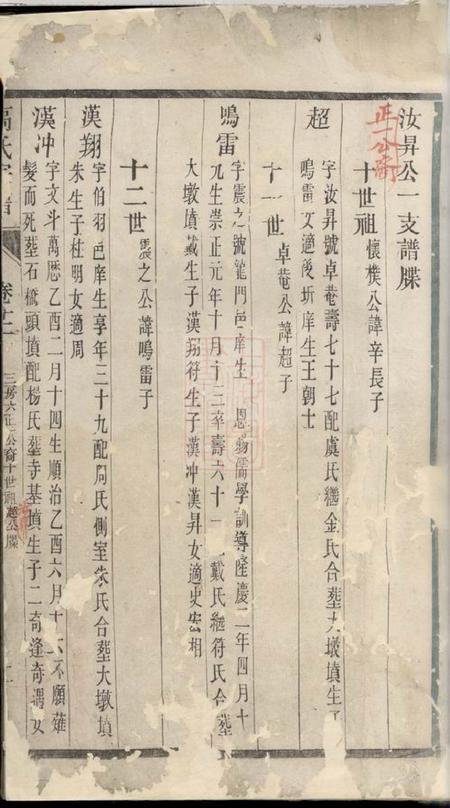 汝昇公一支譜牒
正一公裔
十世祖 懷樸公諱辛長子
超
字汝昇號卓菴壽七十七配虞氏繼金氏合塟大墩墳生子
鳴雷女適後圻庠生王朝士
十一世 卓菴公諱超子
鳴雷
字震之號龍門邑庠生 恩賜儒學訓導隆慶二年四月十
九生崇正元年十月十三卒壽六十一 戴氏繼符氏合塟
大墩墳戴生子漢翔符生子漢冲漢昇女適史宏相
十二世 震之公諱鳴雷子
漢翔
字伯羽邑庠生享年三十九配周氏側室朱氏合塟大墩墳
朱生子柱明女適周
漢冲
字文斗萬厯乙酉二月十四生順治乙酉六月十六不願薙
髮而死塟石橋頭墳配楊氏塟寺基墳生子二奇逢奇遇女
高氏宗譜 卷十二 三房六世 公裔十世祖超公牒